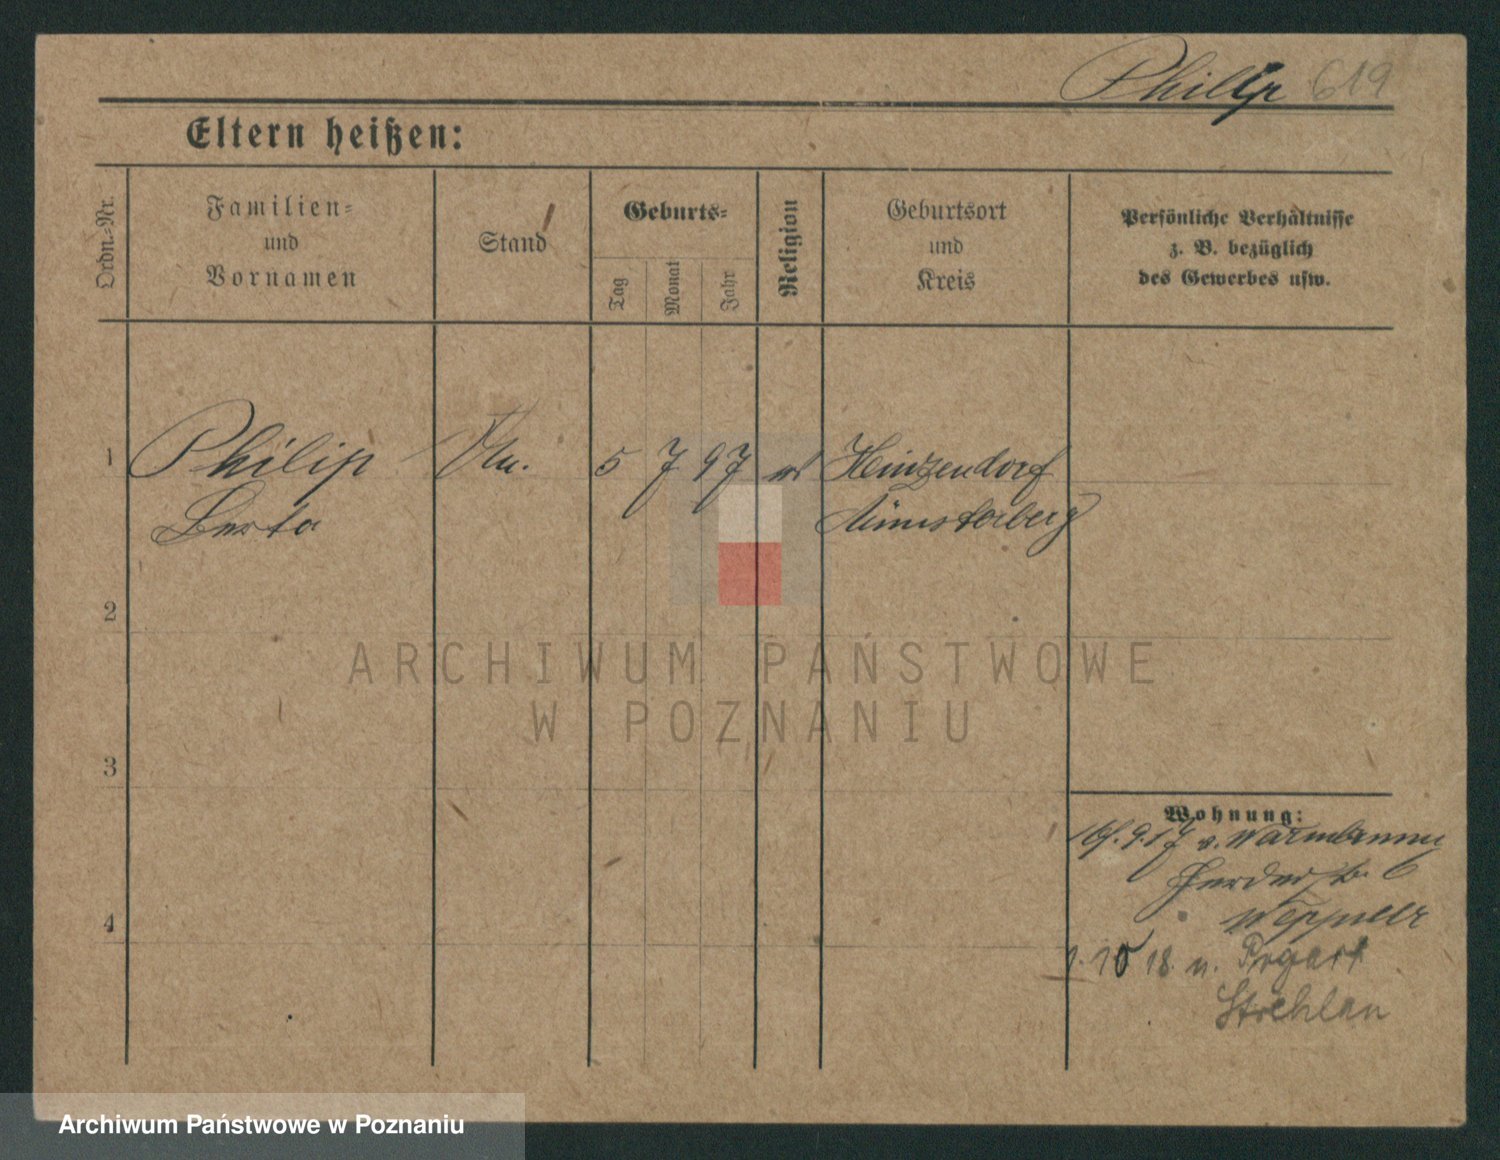 Philip 619
Eltern heißen:
Ordn.-Nr.
Familien-
und
Vornamen
Stand
Geburts-
Tag
Monat
Jahr
Religion
Geburtsort
und
Kreis
Persönliche Verhältnisse
z. B. bezüglich
des Gewerbes usw.
1 Philip 5 7 97 Heinzendorf
Berta Münsterberg
2
3
4
Wohnung:
9.17 v. Warmbrunn
Herderstr. 6
1. 10 18. n. Prgart
Strehlan
ARCHIWUM PAŃSTWOWE
W POZNANIU
Archiwum Państwowe w Poznaniu